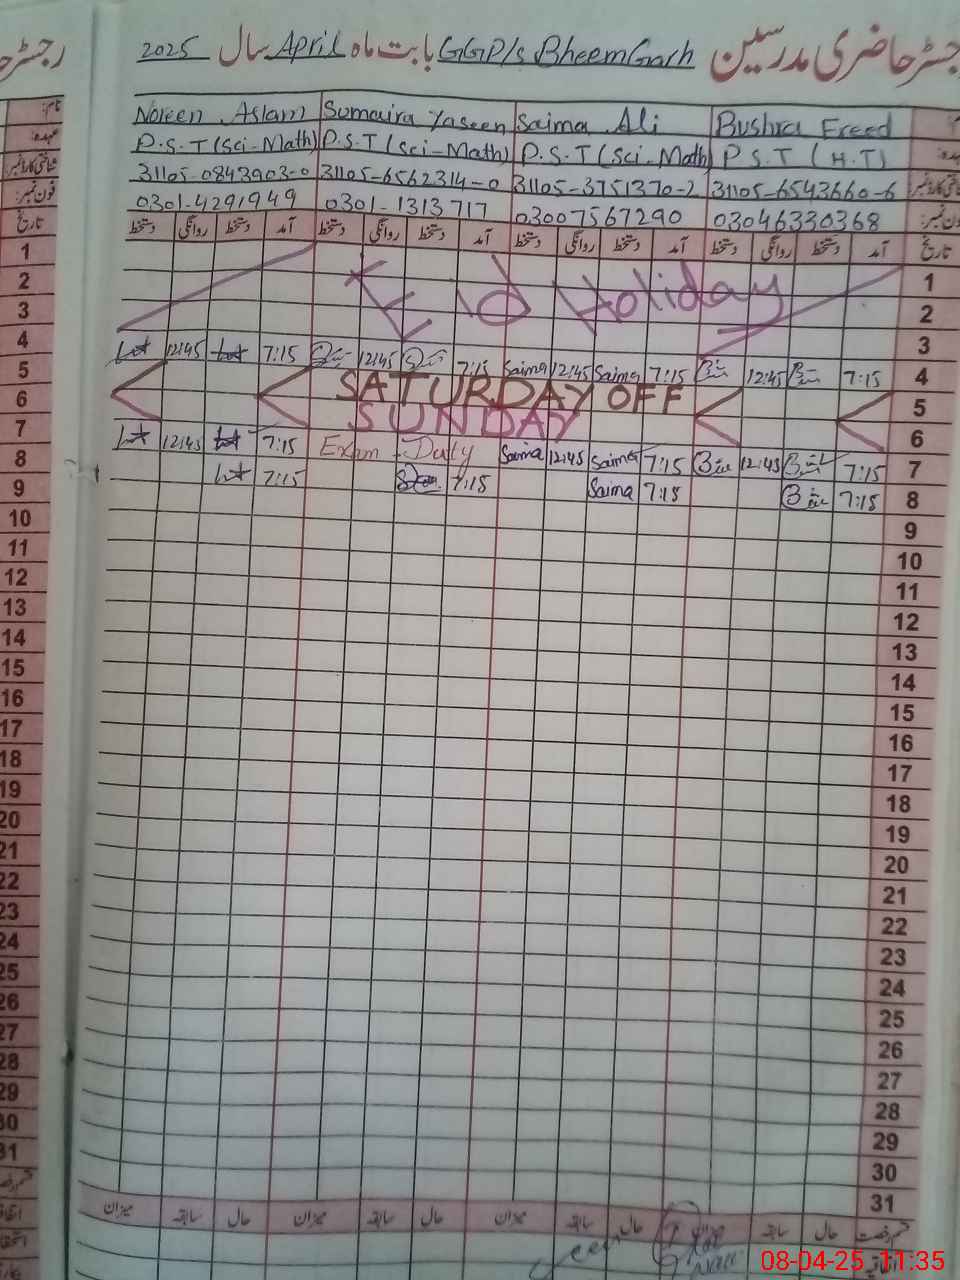 رجسٹر حاضری مدرسین GGP/s BheemGarh بابت ماہ April سال 2025
Noreen Aslam Sumaira Yaseen Saima Ali Bushra Freed
P.S.T (Sci-Math) P.S.T (Sci-Math) P.S.T (Sci-Math) P.S.T (H.T)
شناختی کارڈ نمبر 31105-0843903-0 31105-6562314-0 31105-3751370-2 31105-6543660-6
فون نمبر: 0301-4291949 0301-1313717 03007567290 03046330368
تاریخ آمد دستخط روانگی دستخط آمد دستخط روانگی دستخط آمد دستخط روانگی دستخط آمد دستخط روانگی دستخط تاریخ
1 1
2 Eid Holiday 2
3 3
4 12:45 7:15 12:45 7:15 Saima 12:45 Saima 7:15 12:45 7:15 4
5 SATURDAY OFF 5
6 SUNDAY 6
7 12:45 7:15 Exam - Duty Saima 12:45 Saima 7:15 12:45 7:15 7
8 7:15 7:15 Saima 7:15 7:15 8
9 9
10 10
11 11
12 12
13 13
14 14
15 15
16 16
17 17
18 18
19 19
20 20
21 21
22 22
23 23
24 24
25 25
26 26
27 27
28 28
29 29
30 30
31 31
قسم رخصت حال سابقہ میزان حال سابقہ میزان حال سابقہ میزان
08-04-25 11:35